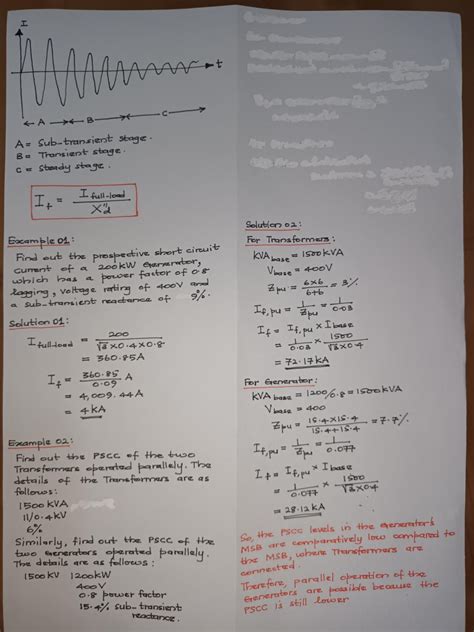 I
t
A
B
C
A = Sub-transient stage.
B = Transient stage.
C = Steady stage.
I_f = I_full-load / X"d
Example 01:
Find out the prospective short circuit
current of a 200kW Generator,
which has a power factor of 0.8
lagging, voltage rating of 400V and
a sub-transient reactance of 9%.
Solution 01:
I_full-load = 200 / (√3 × 0.4 × 0.8)
= 360.85 A
I_f = 360.85 / 0.09 A
= 4,009.44 A
= 4 kA
Example 02:
Find out the PSCC of the two
Transformers operated parallely. The
details of the Transformers are as
follows:
1500 KVA
11/0.4kV
6%
Similarly, find out the PSCC of the
two Generators operated parallely.
The details are as follows:
1500 kV 1200kW
400V
0.8 power factor
15.4% sub-transient
reactance.
Solution 02:
For Transformers:
KVA base = 1500 kVA
V base = 400V
Z pu = (6×6)/(6+6) = 3%
I_f,pu = 1/Z pu = 1/0.03
I_f = I_f,pu × I base
= 1/0.03 × 1500/(√3×0.4)
= 72.17 kA
For Generator:
KVA base = 1200/0.8 = 1500 kVA
V base = 400
Z pu = (15.4×15.4)/(15.4+15.4) = 7.7%
I_f,pu = 1/Z pu = 1/0.077
I_f = I_f,pu × I base
= 1/0.077 × 1500/(√3×0.4)
= 28.12 kA
So, the PSCC levels in the Generator's
MSB are comparatively low compared to
the MSB, where Transformers are
connected.
Therefore, parallel operation of the
Generators are possible because the
PSCC is still lower